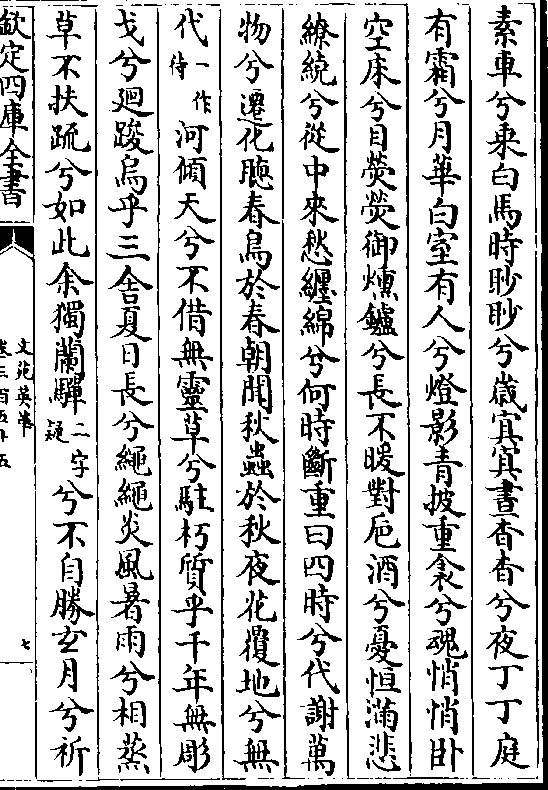 素車兮乗白馬時眇眇兮歲冥冥晝杳杳兮夜丁丁庭
有霜兮月華白室有人兮燈影青披重衾兮魂悄悄卧
空床兮目熒熒御燻鑪兮長不暖對巵酒兮憂恒滿悲
繚繞兮從中來愁纒綿兮何時斷重曰四時兮代謝萬
物兮遷化聴春鳥於春朝聞秋蟲於秋夜花覆地兮無
代一作待河傾天兮不借無靈草兮駐朽質乎千年無彫
戈兮廻踆烏乎三舍夏日長兮繩繩炎風暑雨兮相蒸
草不扶疏兮如此余獨蘭驒二字疑兮不自勝玄月兮祈
欽定四庫全書
文苑英華
卷三百五十五
七